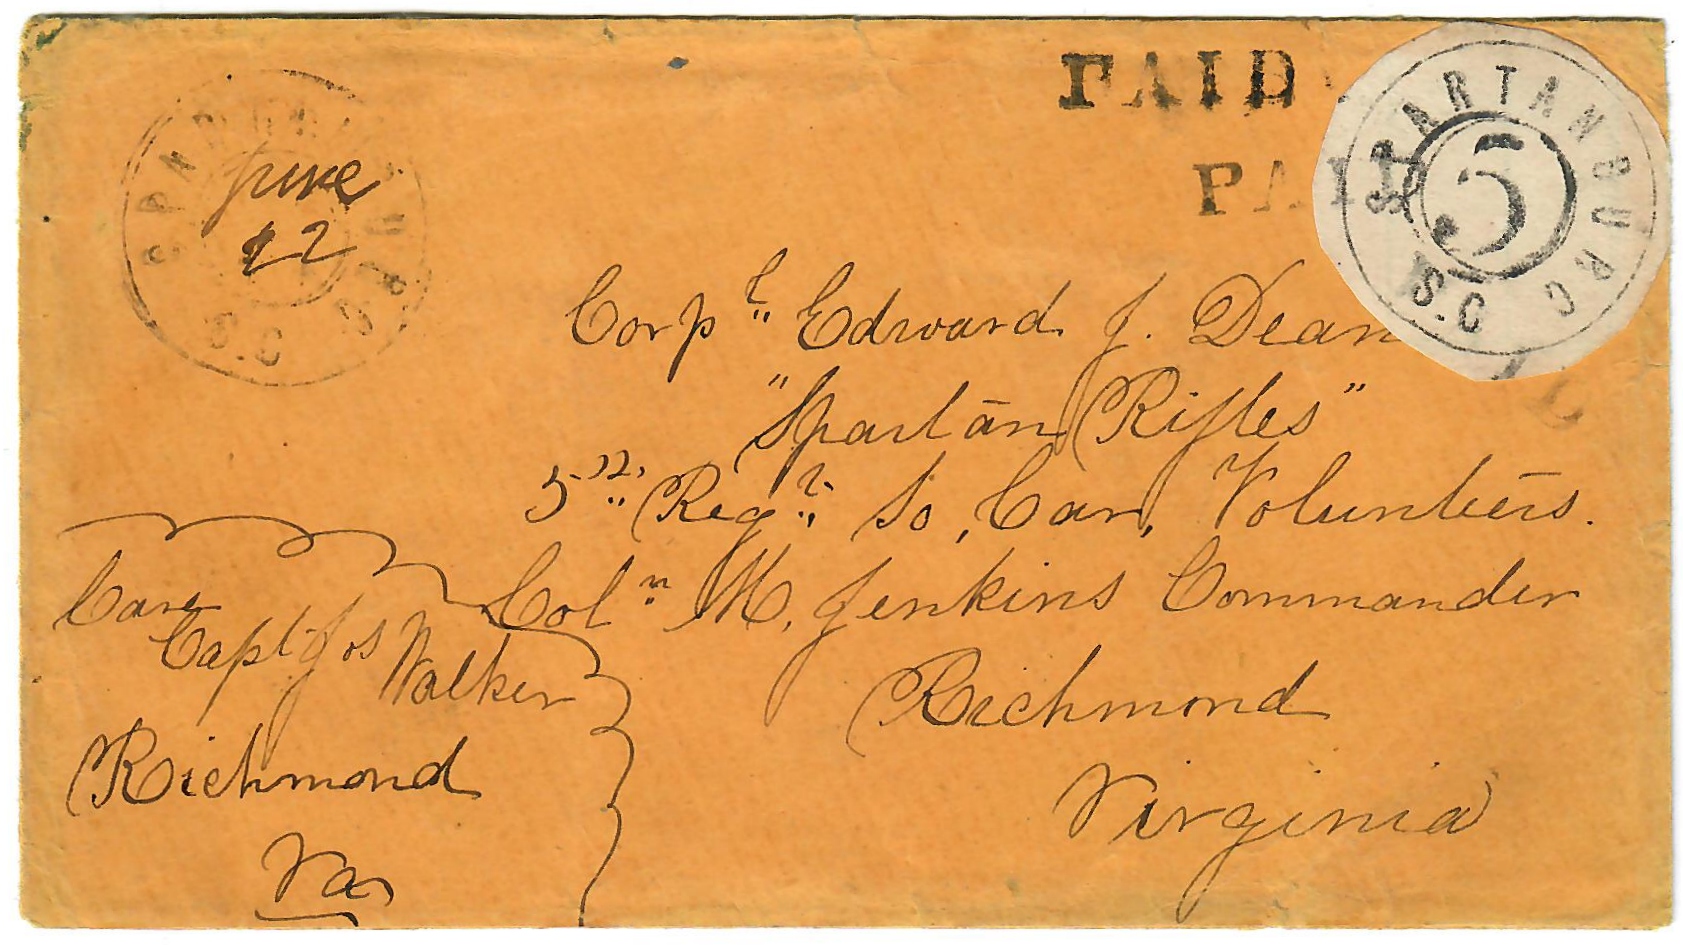 SPARTANBURG
S.C
June
12
PAID
PAI
SPARTANBURG
5
S.C
Corpl Edward J. Dean
"Spartan Rifles"
5th Regt So, Car, Volunteers.
Coln M. Jenkins Commander
Richmond
Virginia
Care
Capt Jos Walker
Richmond
Va